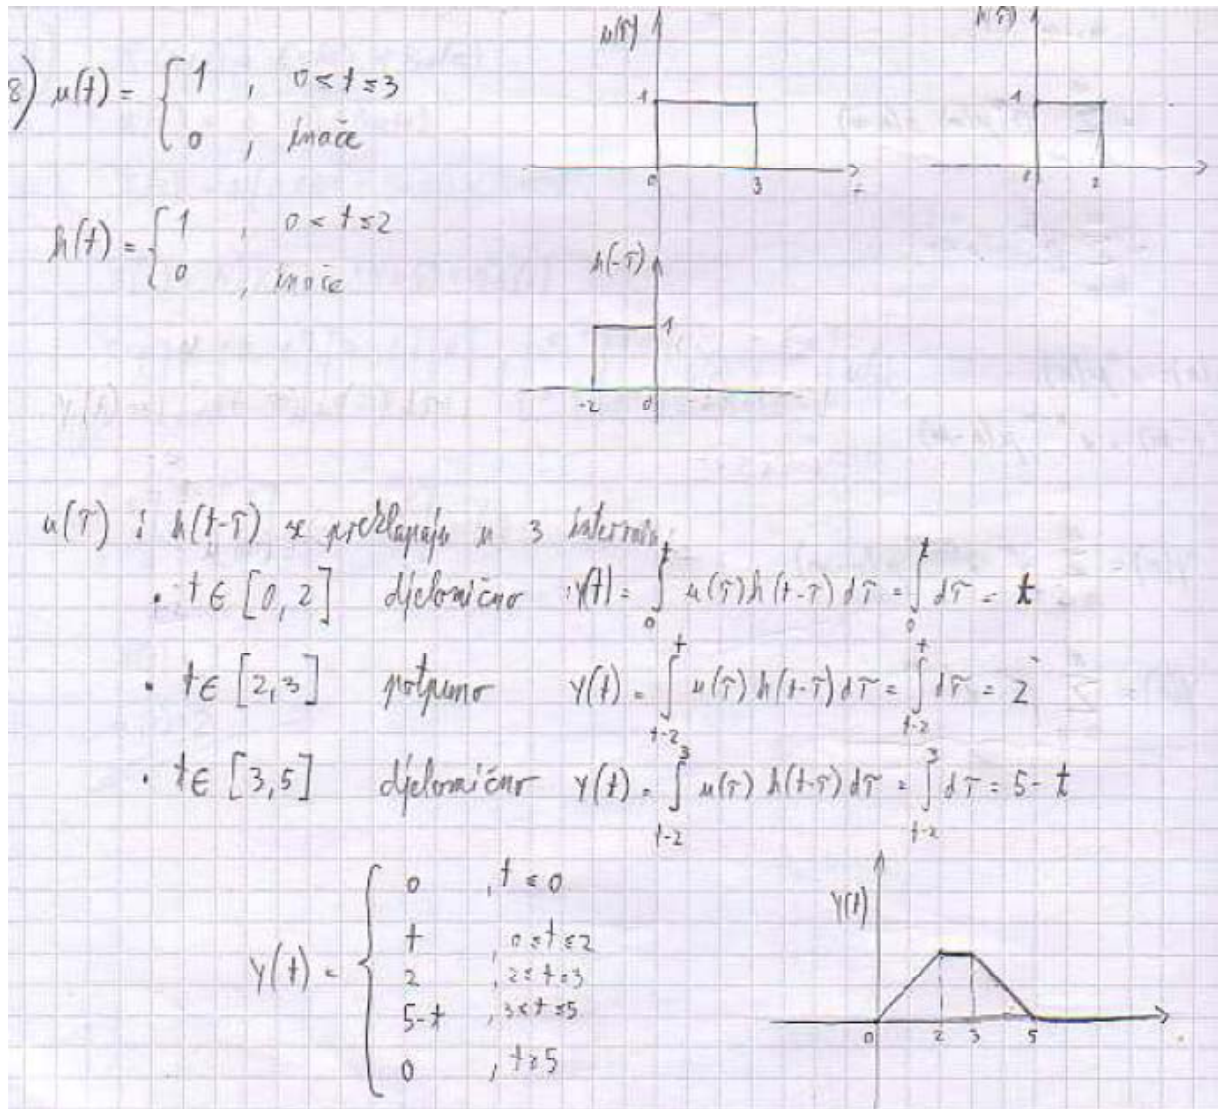 8) u(t) = { 1 , 0 < t ≤ 3
0 , inače
u(τ)
1
0 3
τ
h(τ)
1
0 2
h(t) = { 1 , 0 < t ≤ 2
0 , inače
h(-τ)
1
-2 0
u(τ) i h(t-τ) se preklapaju u 3 intervala
• t ∈ [0, 2] djelomično y(t) = ∫₀ᵗ u(τ) h(t-τ) dτ = ∫₀ᵗ dτ = t
• t ∈ [2,3] potpuno y(t) = ∫_{t-2}^{t} u(τ) h(t-τ) dτ = ∫_{t-2}^{t} dτ = 2
• t ∈ [3,5] djelomično y(t) = ∫_{t-2}^{3} u(τ) h(t-τ) dτ = ∫_{t-2}^{3} dτ = 5 - t
y(t) = { 0 , t ≤ 0
t , 0 ≤ t ≤ 2
2 , 2 ≤ t ≤ 3
5-t , 3 < t ≤ 5
0 , t ≥ 5
y(t)
0 2 3 5